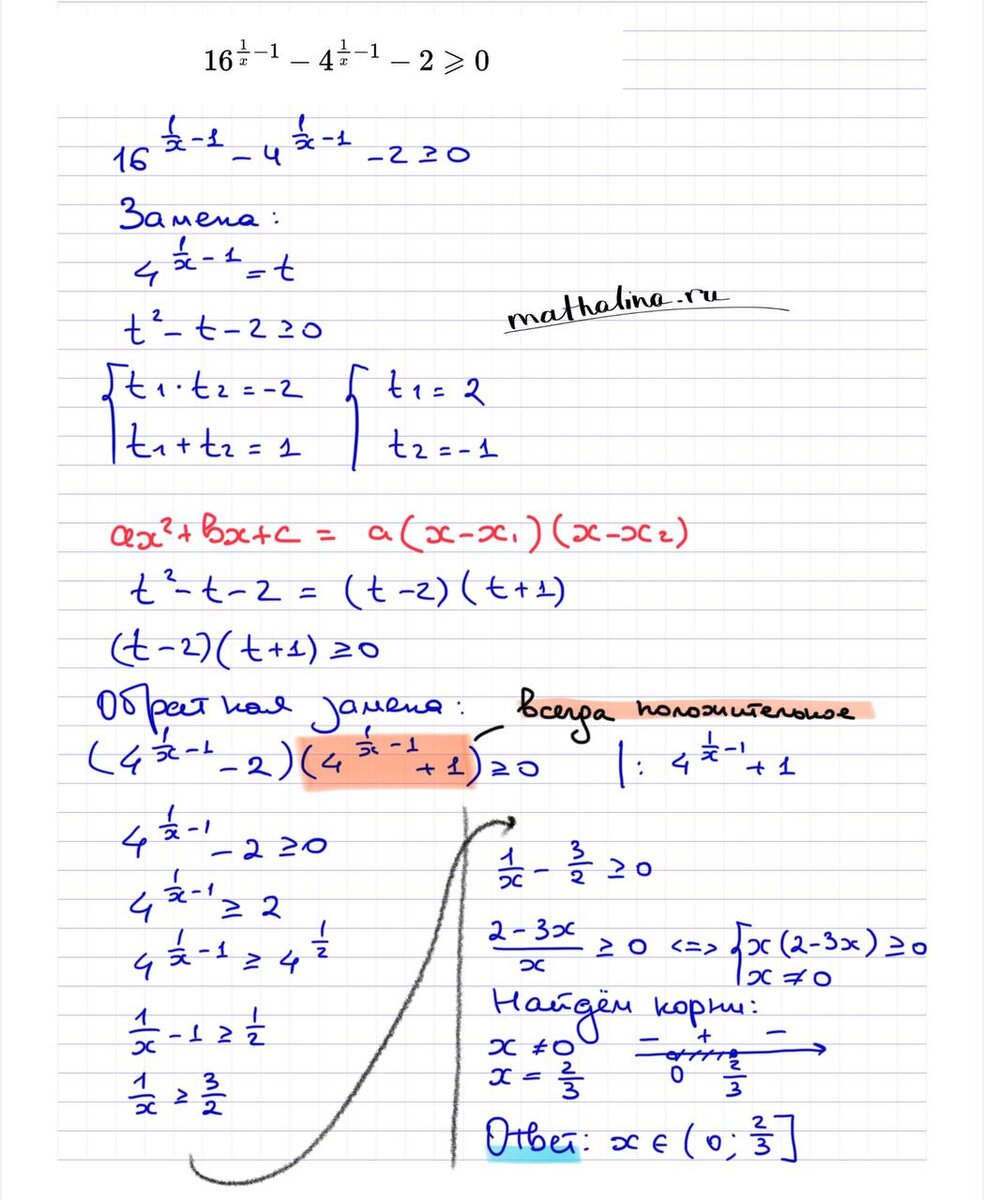 16^{\frac{1}{x}-1} - 4^{\frac{1}{x}-1} - 2 ⩾ 0
16^{\frac{1}{x}-1} - 4^{\frac{1}{x}-1} - 2 ≥ 0
Замена:
4^{\frac{1}{x}-1} = t
mathalina.ru
t² - t - 2 ≥ 0
{ t₁ · t₂ = -2 { t₁ = 2
t₁ + t₂ = 1 t₂ = -1
ax² + bx + c = a(x - x₁)(x - x₂)
t² - t - 2 = (t - 2)(t + 1)
(t - 2)(t + 1) ≥ 0
Обратная замена: всегда положительное
(4^{\frac{1}{x}-1} - 2)(4^{\frac{1}{x}-1} + 1) ≥ 0 | : 4^{\frac{1}{x}-1} + 1
4^{\frac{1}{x}-1} - 2 ≥ 0
4^{\frac{1}{x}-1} ≥ 2
4^{\frac{1}{x}-1} ≥ 4^{\frac{1}{2}}
\frac{1}{x} - 1 ≥ \frac{1}{2}
\frac{1}{x} ≥ \frac{3}{2}
\frac{1}{x} - \frac{3}{2} ≥ 0
\frac{2-3x}{x} ≥ 0 <=> { x(2-3x) ≥ 0
x ≠ 0
Найдём корни:
x ≠ 0 - + -
x = \frac{2}{3} 0 \frac{2}{3}
Ответ: x ∈ (0; \frac{2}{3}]